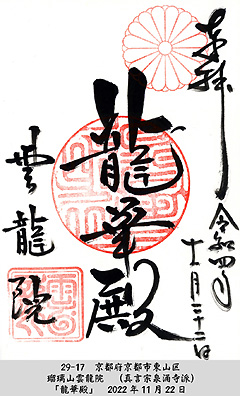 奉拝
令和四年
十一月二十二日
龍華殿
雲龍院
29-17　京都府京都市東山区
瑠璃山雲龍院　（真言宗泉涌寺派）
「龍華殿」　2022年11月22日